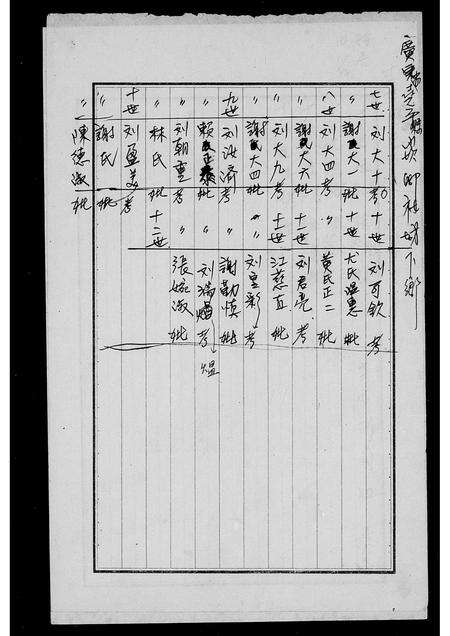 廣東
七世 刘大十考 十世 刘可欽 考
〃 謝氏大一妣 十世 尤氏温惠 妣
八世 刘大四考 〃 黄氏正二 妣
〃 謝氏大六妣 十一世 刘君亮 考
〃 刘大九考 十一世 江慈直 妣
〃 謝氏大四妣 〃 刘皇彩 考
九世 刘汝濟考 〃 謝勤慎 妣
〃 賴氏正 妣 〃 刘瑞 考
〃 刘朝重考 張婉淑 妣
〃 林氏 妣 十二世
十世 刘盈美考
〃 謝氏 妣
〃 陳德淑 妣